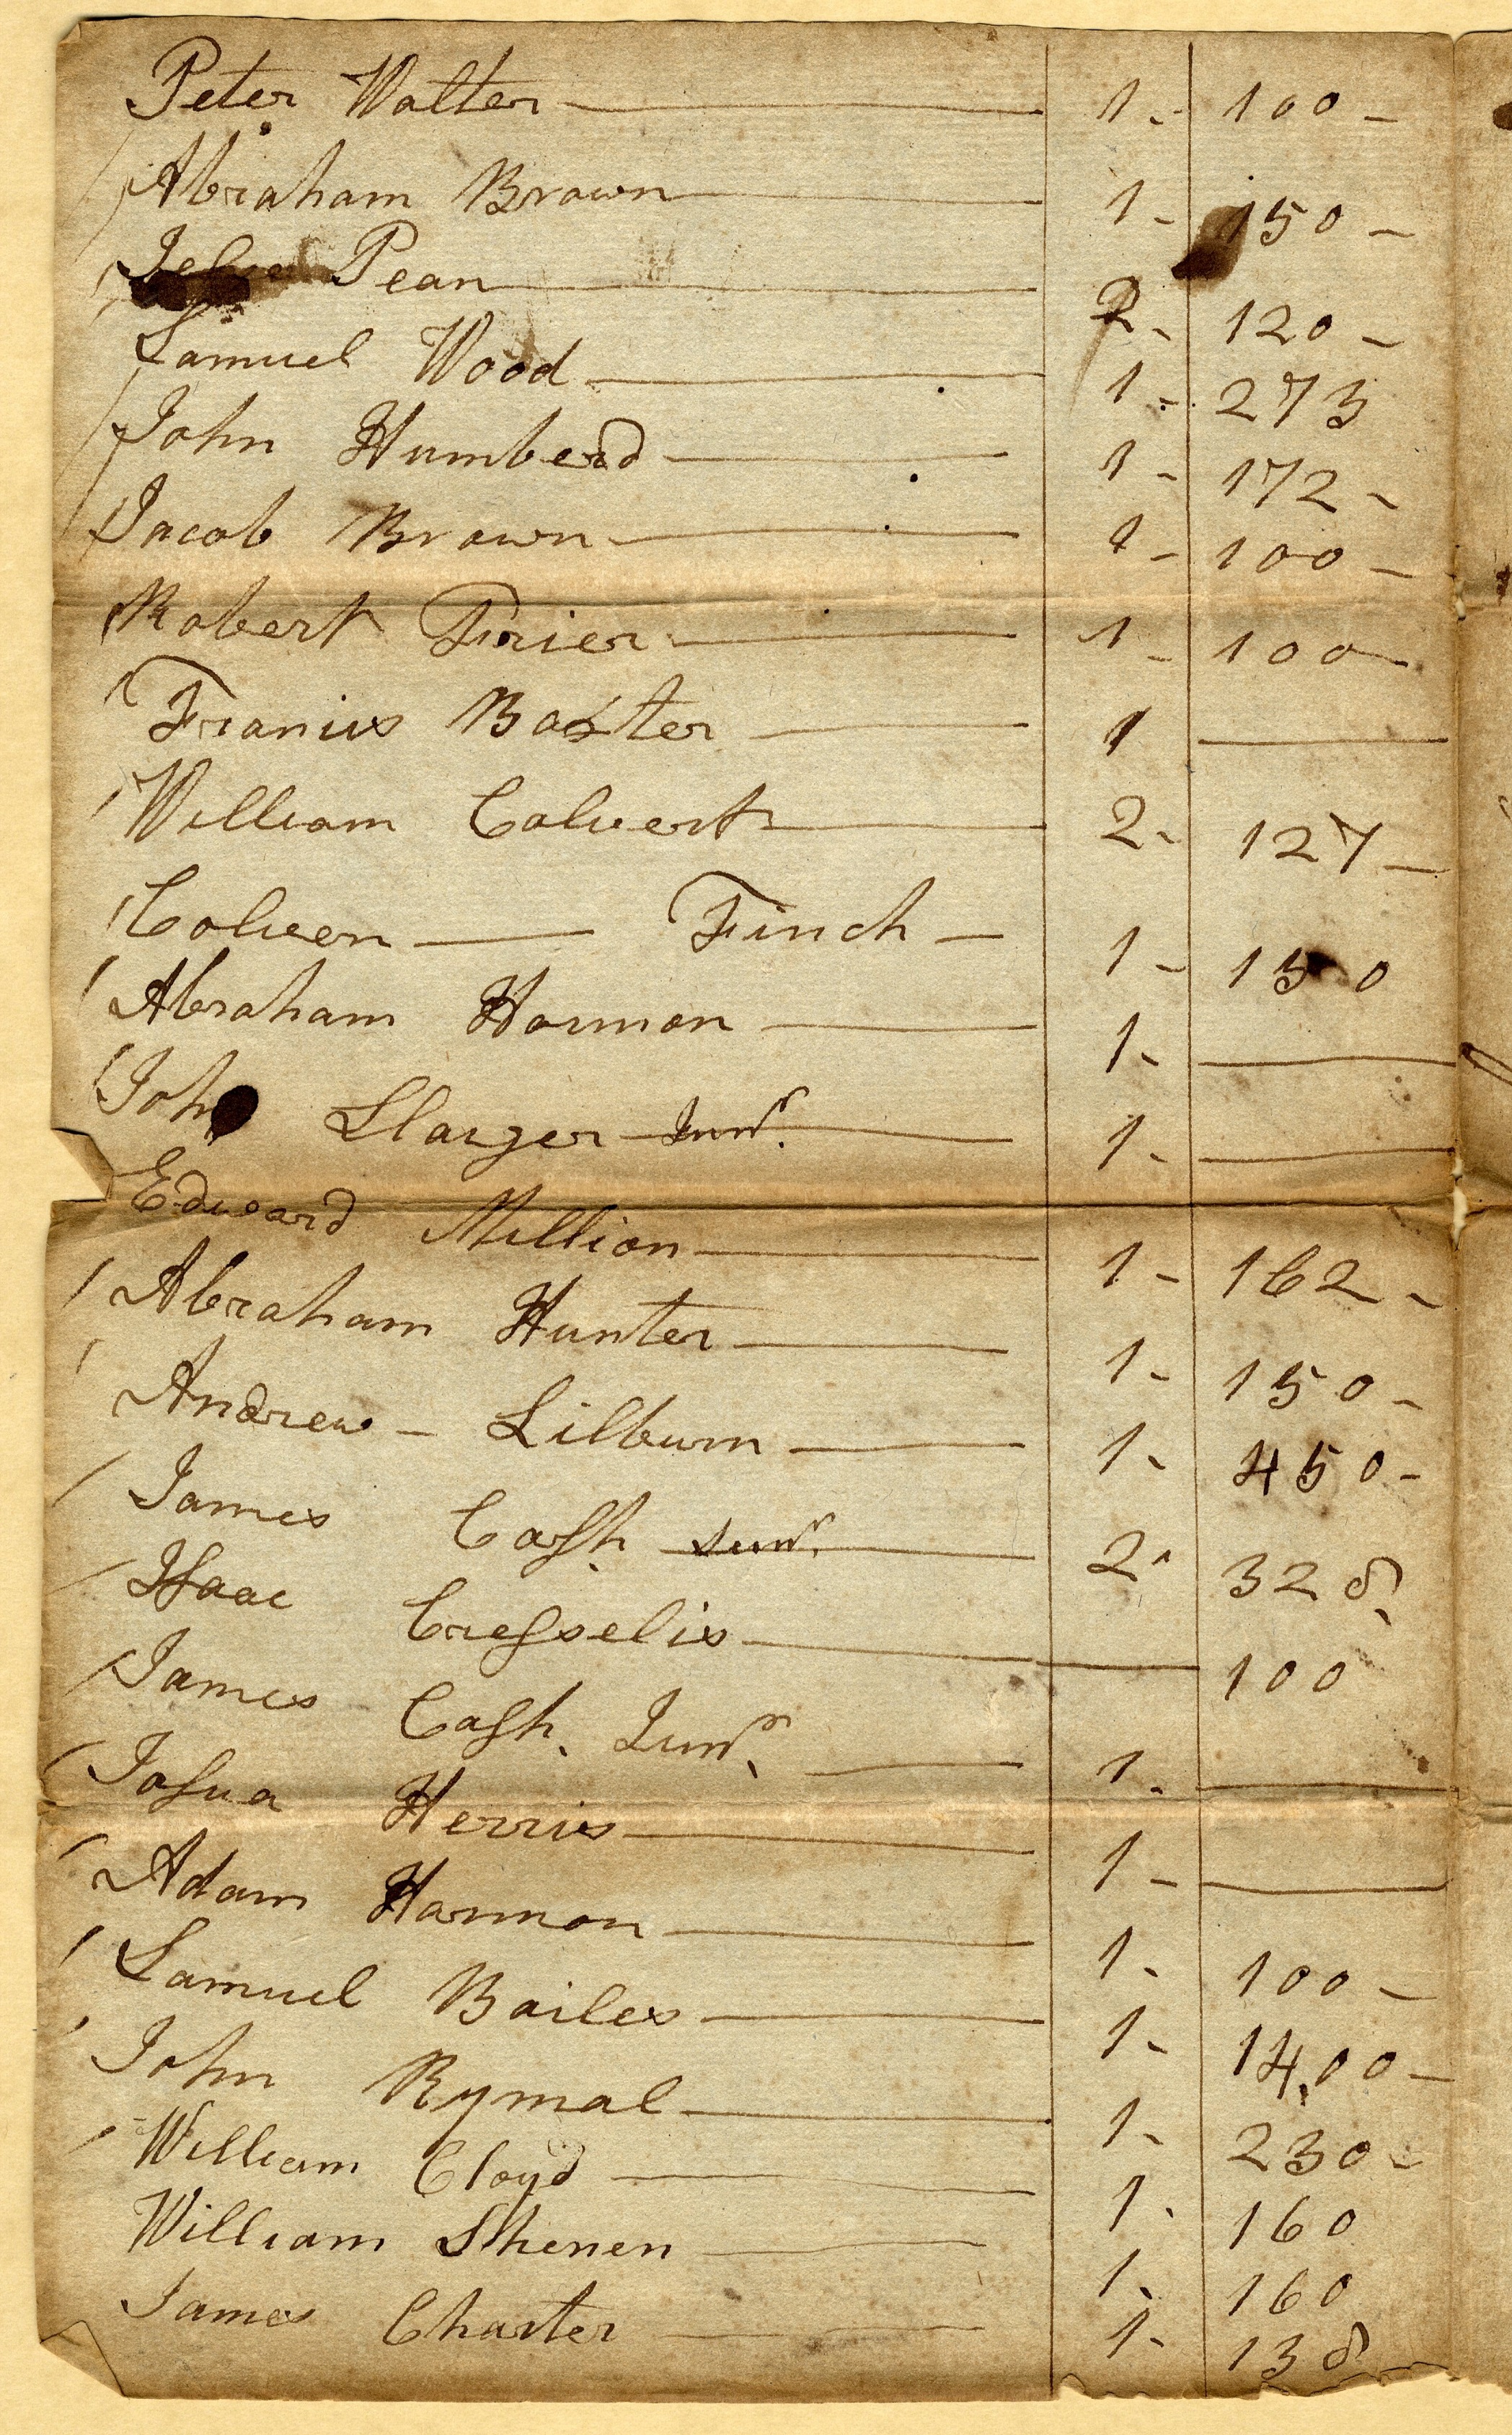 Peter Walter 1 - 100 -
Abraham Brown 1 - 150 -
Pean 2 - 120 -
Samuel Wood 1 - 273
John Humberd 1 - 172 -
Jacob Brown 1 - 100 -
Robert Frier 1 - 100 -
Francis Baxter 1 —
William Calvert 2 - 127 -
Calven — Finch — 1 - 150
Abraham Harmon 1 - —
John Llarger Junr. 1 - —
Edward Million 1 - 162 -
Abraham Hunter 1 - 150 -
Andrew - Lilburn 1 - 450 -
James Cash Senr. 2 - 328
Isaac Cresselis — 100
James Cash Junr. 1 - —
Josua Herris 1 - —
Adam Harmon 1 - 100 -
Samuel Bailes 1 - 14,00 -
John Rymal 1 - 230 -
William Cloyd 1 - 160
William Shenen 1 - 160
James Charter 1 - 138